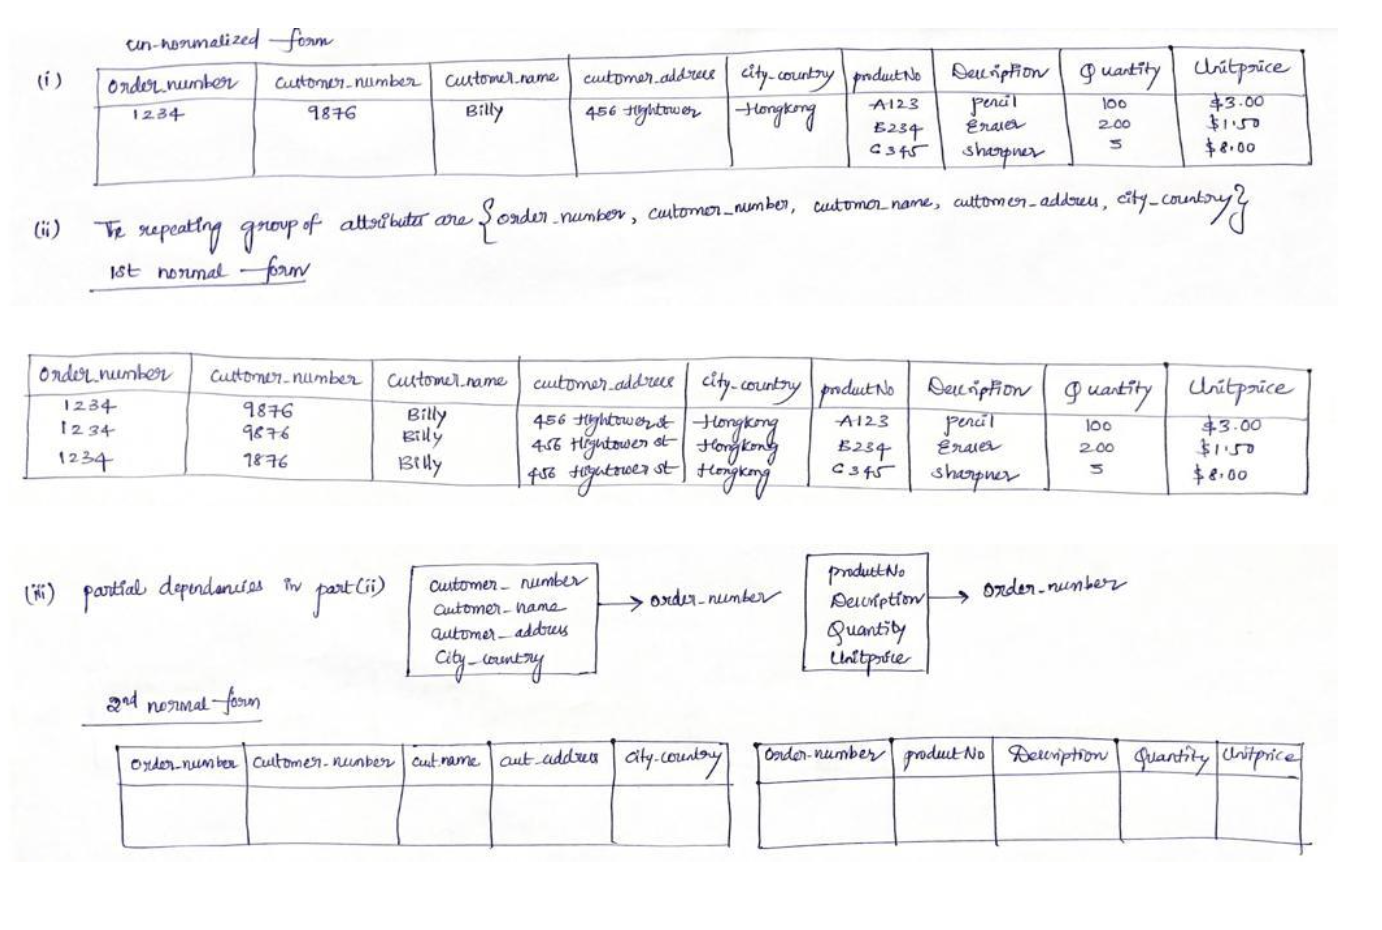 un-normalized form
(i) Order_number Customer_number Customer_name customer_address city_country productNo Description Quantity Unitprice
1234 9876 Billy 456 Hightower Hongkong A123 pencil 100 $3.00
B234 Eraser 200 $1.50
C345 sharpner 5 $8.00
(ii) The repeating group of attributes are {order_number, customer_number, customer_name, customer_address, city_country}
1st normal form
Order_number Customer_number Customer_name customer_address city_country productNo Description Quantity Unitprice
1234 9876 Billy 456 Hightower st Hongkong A123 pencil 100 $3.00
1234 9876 Billy 456 Hightower st Hongkong B234 Eraser 200 $1.50
1234 9876 Billy 456 Hightower st Hongkong C345 sharpner 5 $8.00
(iii) partial dependancies in part(ii)
customer_number
customer_name
customer_address
City_country
→ order_number
productNo
Description
Quantity
Unitprice
→ order_number
2nd normal form
Order_number Customer_number cust.name cust_address City_country
Order_number productNo Description Quantity Unitprice